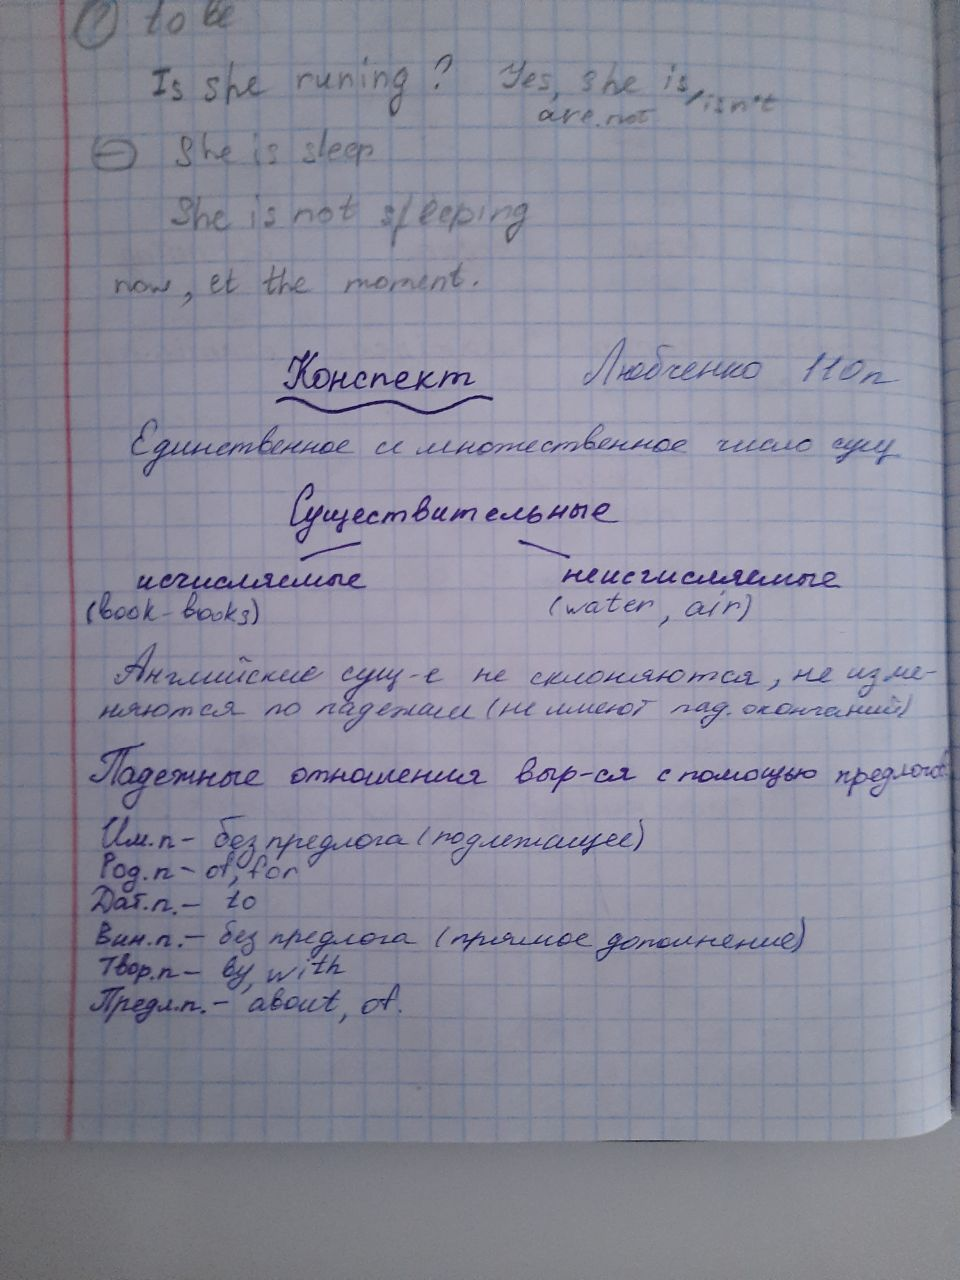 (?) to be
Is she runing? Yes, she is/isn't
are not
(−) She is sleep
She is not sleeping
now, et the moment.
Конспект Любченко 110п
Единственное и множественное число сущ
Существительные
исчисляемые неисчисляемые
(book - books) (water, air)
Английские сущ-е не склоняются, не изме-
няются по падежам (не имеют пад. окончаний)
Падежные отношения выр-ся с помощью предлогов.
Им.п - без предлога (подлежащее)
Род.п - of, for
Дат.п. - to
Вин.п. - без предлога (прямое дополнение)
Твор.п - by, with
Предл.п. - about, of.